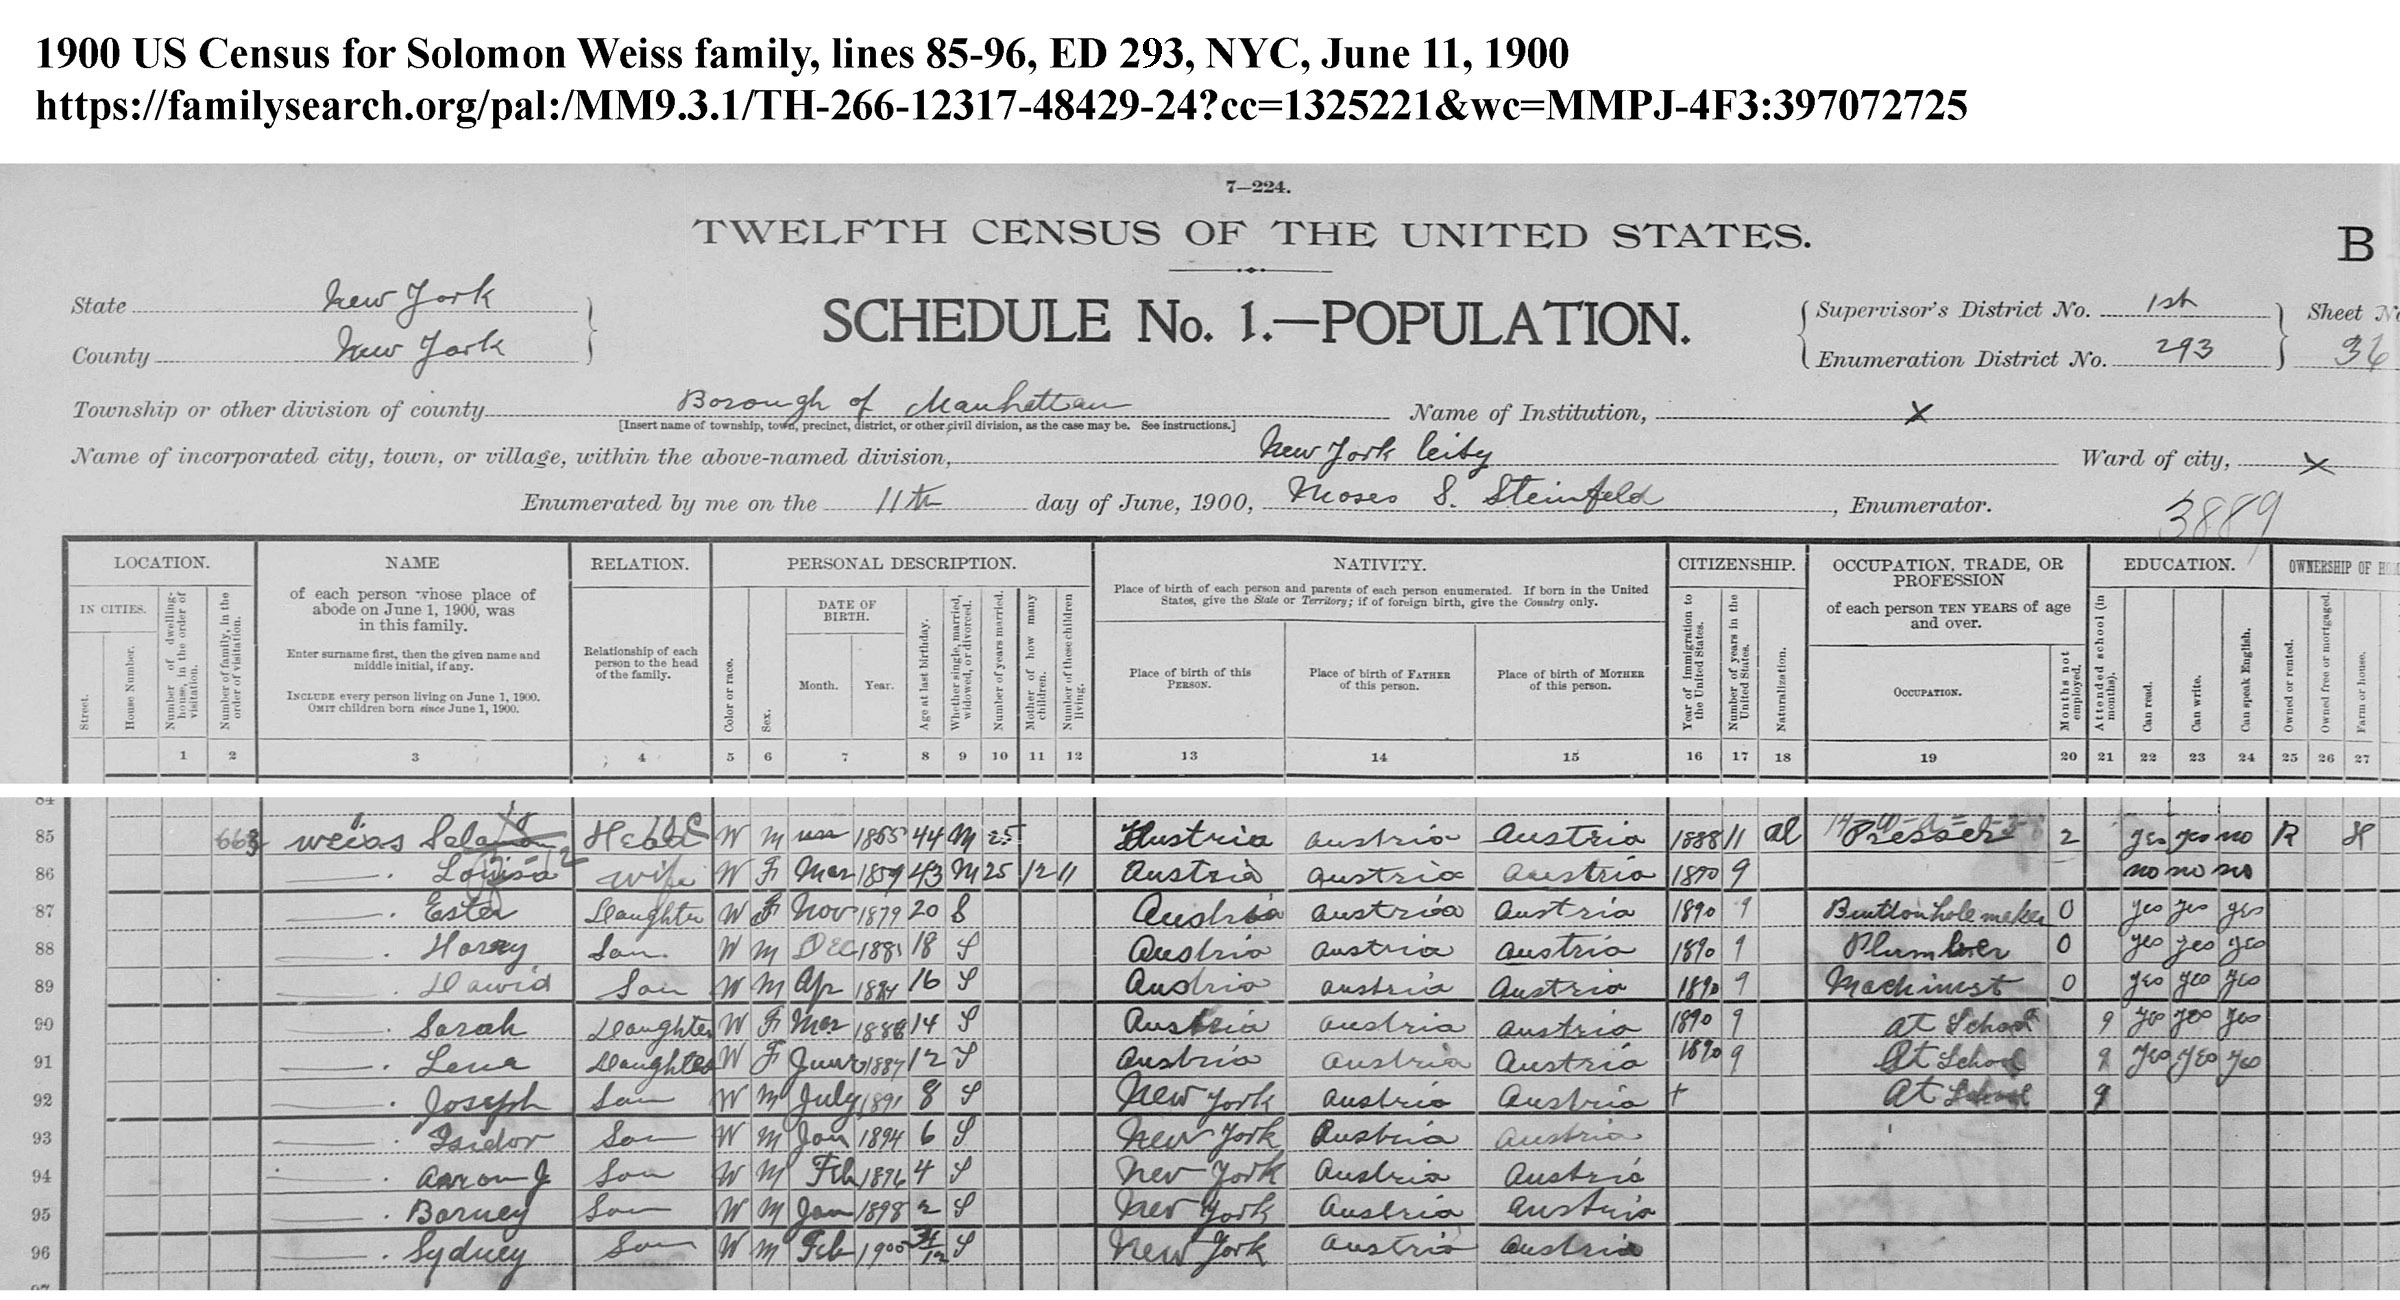 1900 US Census for Solomon Weiss family, lines 85-96, ED 293, NYC, June 11, 1900
https://familysearch.org/pal:/MM9.3.1/TH-266-12317-48429-24?cc=1325221&wc=MMPJ-4F3:397072725
7—224.
TWELFTH CENSUS OF THE UNITED STATES.
B
State New York
SCHEDULE No. 1.—POPULATION.
Supervisor's District No. 1st
Sheet
County New York
Enumeration District No. 293
36
Township or other division of county Borough of Manhattan
Name of Institution, X
[Insert name of township, town, precinct, district, or other civil division, as the case may be. See instructions.]
Name of incorporated city, town, or village, within the above-named division, New York City
Ward of city, X
Enumerated by me on the 11th day of June, 1900, Moses S. Steinfeld, Enumerator.
3889
LOCATION. NAME RELATION. PERSONAL DESCRIPTION. NATIVITY. CITIZENSHIP. OCCUPATION, TRADE, OR PROFESSION EDUCATION. OWNERSHIP OF
IN CITIES.
Street.
House Number.
Number of dwelling-house, in the order of visitation.
Number of family, in the order of visitation.
of each person whose place of abode on June 1, 1900, was in this family.
Enter surname first, then the given name and middle initial, if any.
INCLUDE every person living on June 1, 1900.
OMIT children born since June 1, 1900.
Relationship of each person to the head of the family.
Color or race.
Sex.
DATE OF BIRTH.
Month. Year.
Age at last birthday.
Whether single, married, widowed, or divorced.
Number of years married.
Mother of how many children.
Number of these children living.
Place of birth of each person and parents of each person enumerated. If born in the United States, give the State or Territory; if of foreign birth, give the Country only.
Place of birth of this PERSON.
Place of birth of FATHER of this person.
Place of birth of MOTHER of this person.
Year of immigration to the United States.
Number of years in the United States.
Naturalization.
of each person TEN YEARS of age and over.
OCCUPATION.
Months not employed.
Attended school (in months).
Can read.
Can write.
Can speak English.
Owned or rented.
Owned free or mortgaged.
Farm or house.
1 2 3 4 5 6 7 8 9 10 11 12 13 14 15 16 17 18 19 20 21 22 23 24 25 26 27
84
85 663 Weiss Head W M 1855 44 M 25 Austria Austria Austria 1888 11 al Presser 2 yes yes no R H
86 Louisa wife W F Mar 43 M 25 12 11 Austria Austria Austria 1890 9 no no no
87 Ester Daughter W F Nov 1879 20 S Austria Austria Austria 1890 9 Buttonhole maker 0 yes yes yes
88 Harry Son W M Dec 1881 18 S Austria Austria Austria 1890 9 Plumber 0 yes yes yes
89 David Son W M Apr 1884 16 S Austria Austria Austria 1890 9 Machinist 0 yes yes yes
90 Sarah Daughter W F Mar 14 S Austria Austria Austria 1890 9 At School 9 yes yes yes
91 Lena Daughter W F June 1887 12 S Austria Austria Austria 1890 9 At School 9 yes yes yes
92 Joseph Son W M July 1891 8 S New York Austria Austria + At School 9
93 Isidor Son W M Jan 1894 6 S New York Austria Austria
94 Aaron J. Son W M Feb 1896 4 S New York Austria Austria
95 Barney Son W M Jan 1898 2 S New York Austria Austria
96 Sydney Son W M Feb 1900 3/12 S New York Austria Austria